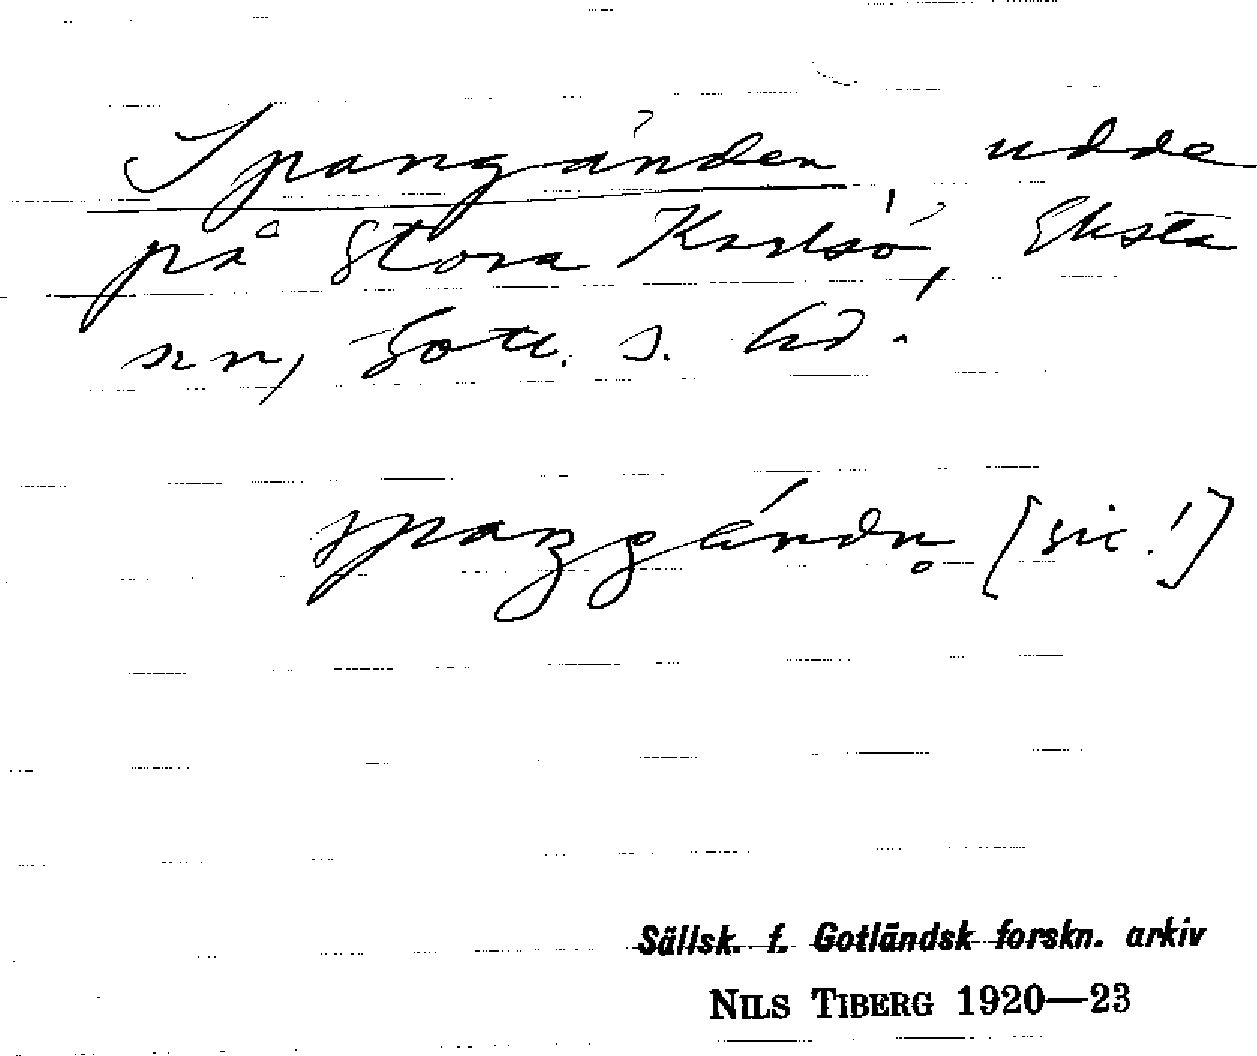 Spangånden udde
på Stora Karlsö, Eksta
sn, Gotl. s. hd.
spaŋgándn̥ [sic!]
Sällsk. f. Gotländsk forskn. arkiv
NILS TIBERG 1920—23